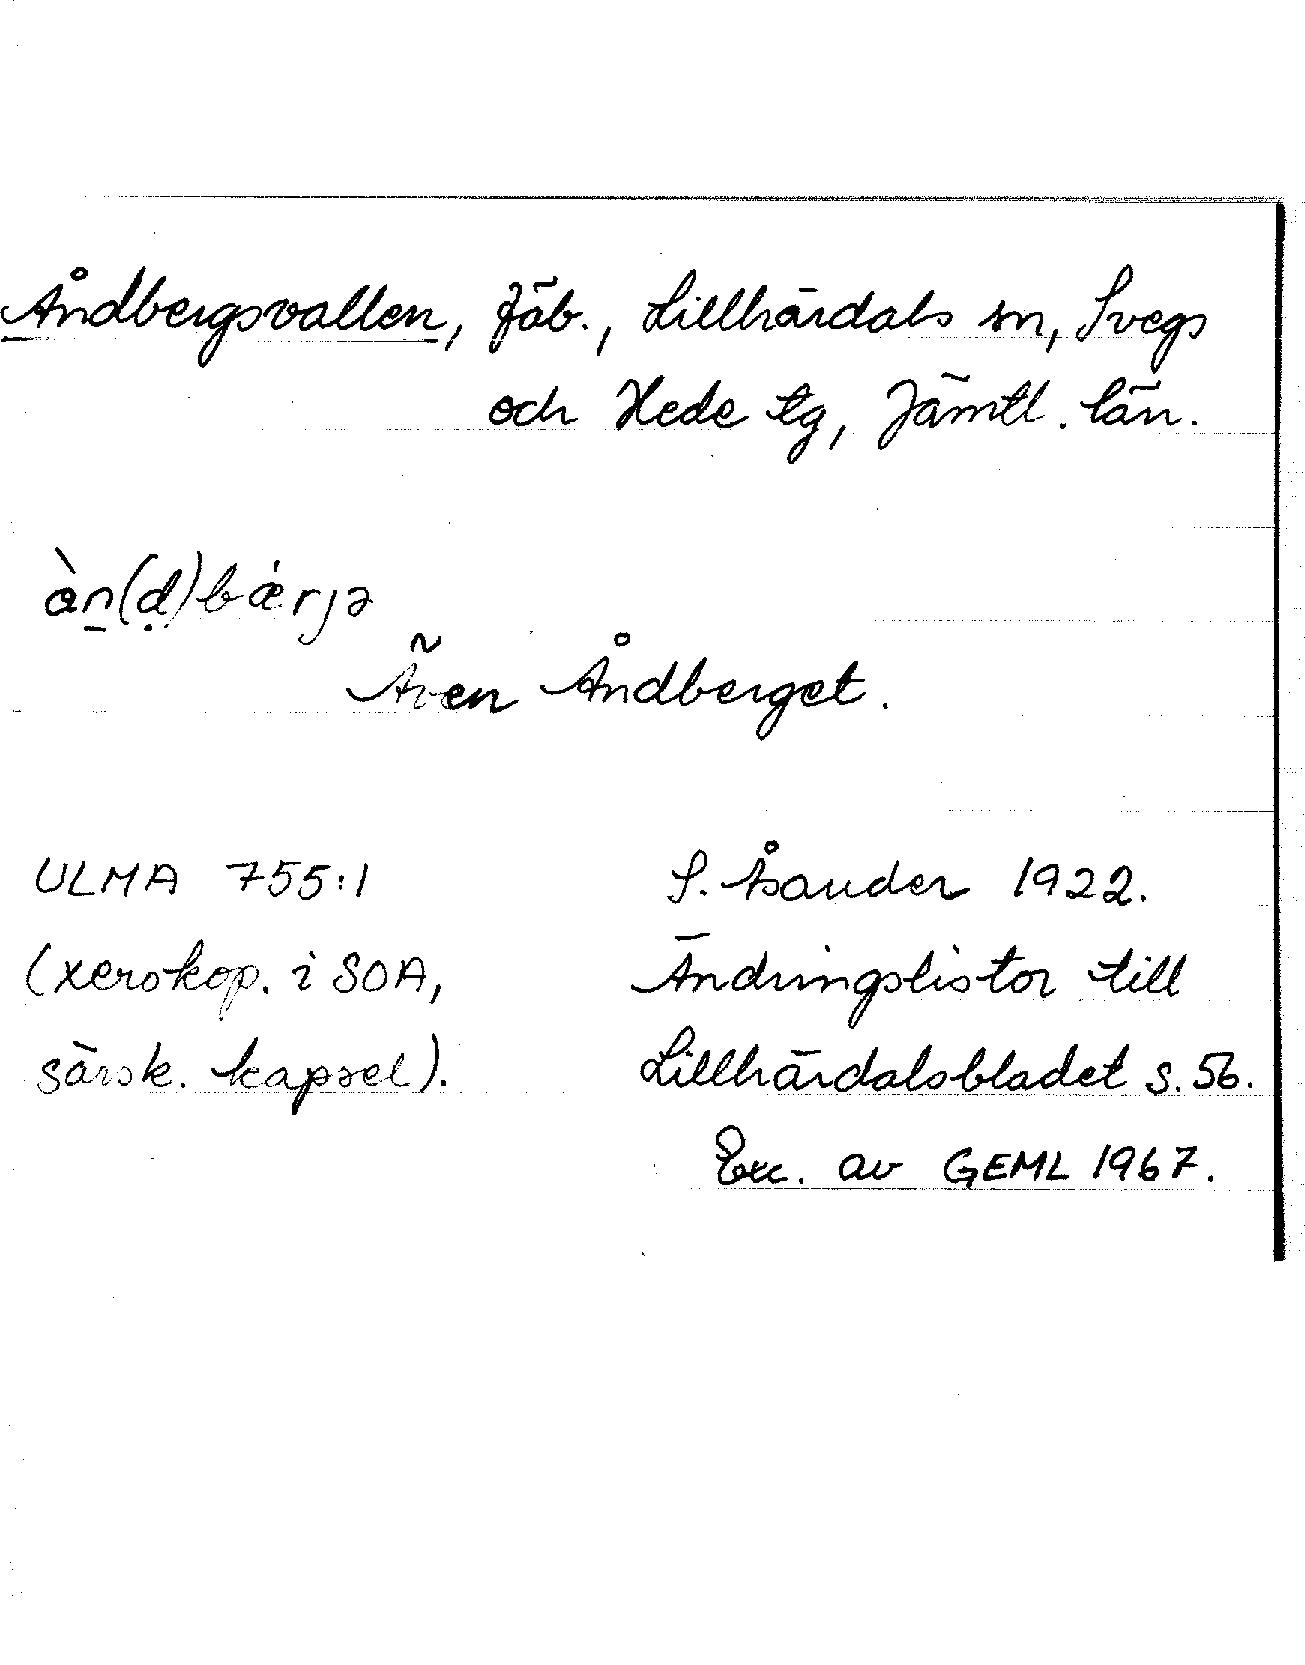 Åndbergsvallen, fäb., Lillhärdals sn, Svegs
och Hede tg, Jämtl. län.
àn̠(ḍ)bǽrjə
Även Åndberget.
ULMA 755:1
(xerokop. i SOA,
särsk. kapsel).
S. Åsander 1922.
Ändringslistor till
Lillhärdalsbladet s. 56.
Exc. av GEML 1967.